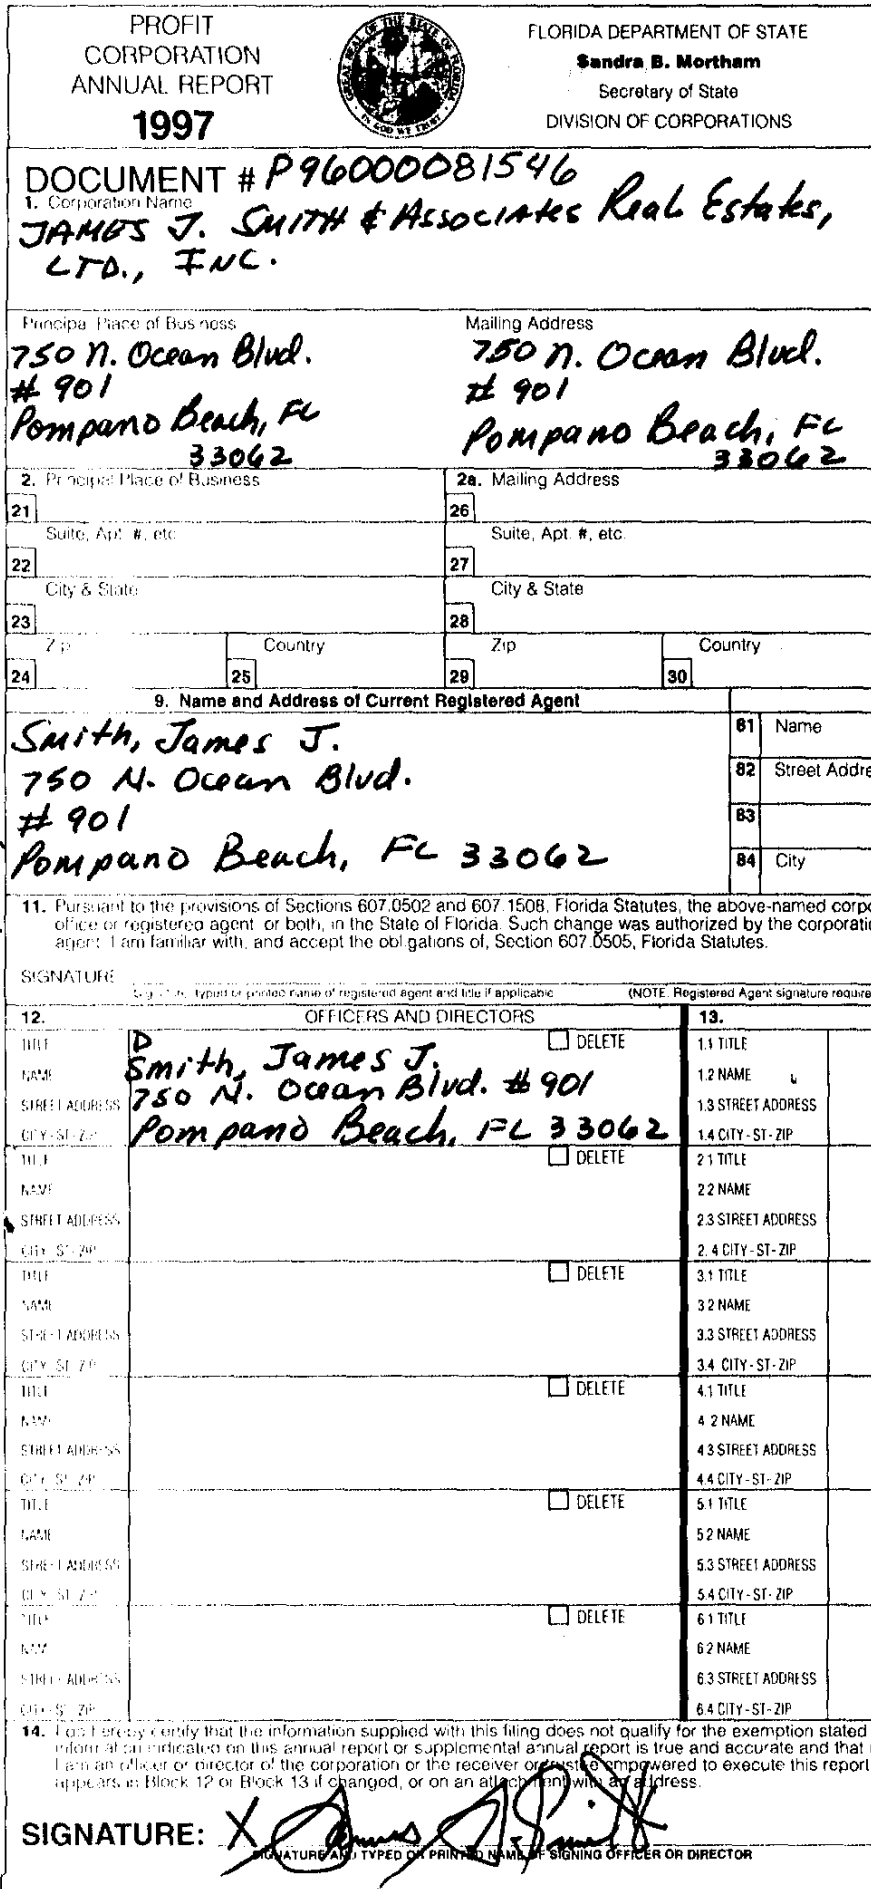 PROFIT
CORPORATION
ANNUAL REPORT
1997
GREAT SEAL OF THE STATE OF FLORIDA
IN GOD WE TRUST
FLORIDA DEPARTMENT OF STATE
Sandra B. Mortham
Secretary of State
DIVISION OF CORPORATIONS
DOCUMENT # P96000081546
1. Corporation Name
JAMES J. SMITH & Associates Real Estates,
LTD., INC.
Principal Place of Business
750 N. Ocean Blvd.
# 901
Pompano Beach, FL
33062
Mailing Address
750 N. Ocean Blvd.
# 901
Pompano Beach, FL
33062
2. Principal Place of Business
2a. Mailing Address
21
26
Suite, Apt. #, etc.
Suite, Apt. #, etc.
22
27
City & State
City & State
23
28
Zip
Country
Zip
Country
24
25
29
30
9. Name and Address of Current Registered Agent
Smith, James J.
750 N. Ocean Blvd.
# 901
Pompano Beach, FL 33062
81 Name
82 Street Addre
83
84 City
11. Pursuant to the provisions of Sections 607.0502 and 607.1508, Florida Statutes, the above-named corpo
office or registered agent, or both, in the State of Florida. Such change was authorized by the corporati
agent. I am familiar with, and accept the obligations of, Section 607.0505, Florida Statutes.
SIGNATURE
Signature, typed or printed name of registered agent and title if applicable
(NOTE: Registered Agent signature require
12. OFFICERS AND DIRECTORS
13.
TITLE D DELETE
NAME Smith, James J.
STREET ADDRESS 750 N. Ocean Blvd. # 901
CITY-ST-ZIP Pompano Beach, FL 33062
1.1 TITLE
1.2 NAME
1.3 STREET ADDRESS
1.4 CITY-ST-ZIP
TITLE DELETE
NAME
STREET ADDRESS
CITY-ST-ZIP
2.1 TITLE
2.2 NAME
2.3 STREET ADDRESS
2.4 CITY-ST-ZIP
TITLE DELETE
NAME
STREET ADDRESS
CITY-ST-ZIP
3.1 TITLE
3.2 NAME
3.3 STREET ADDRESS
3.4 CITY-ST-ZIP
TITLE DELETE
NAME
STREET ADDRESS
CITY-ST-ZIP
4.1 TITLE
4.2 NAME
4.3 STREET ADDRESS
4.4 CITY-ST-ZIP
TITLE DELETE
NAME
STREET ADDRESS
CITY-ST-ZIP
5.1 TITLE
5.2 NAME
5.3 STREET ADDRESS
5.4 CITY-ST-ZIP
TITLE DELETE
NAME
STREET ADDRESS
CITY-ST-ZIP
6.1 TITLE
6.2 NAME
6.3 STREET ADDRESS
6.4 CITY-ST-ZIP
14. I do hereby certify that the information supplied with this filing does not qualify for the exemption stated
information indicated on this annual report or supplemental annual report is true and accurate and that
I am an officer or director of the corporation or the receiver or trustee empowered to execute this report
appears in Block 12 or Block 13 if changed, or on an attachment with an address.
SIGNATURE: X James J. Smith
SIGNATURE AND TYPED OR PRINTED NAME OF SIGNING OFFICER OR DIRECTOR